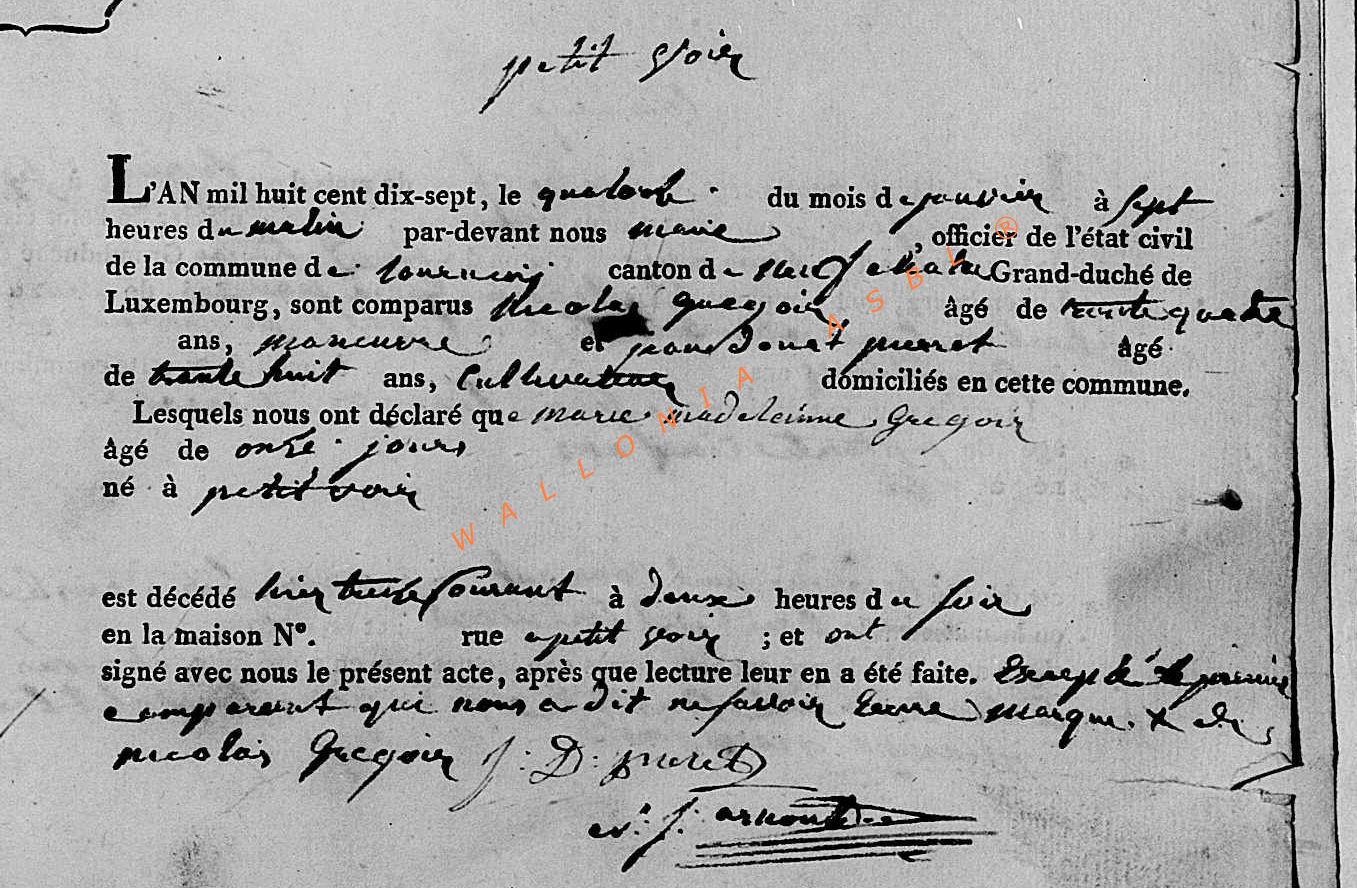 petit Voir
L'AN mil huit cent dix-sept, le quatorse du mois de janvier à sept
heures du matin par-devant nous maire, officier de l'état civil
de la commune de tournay canton de neufchateau Grand-duché de
Luxembourg, sont comparus Nicolas Gregoir âgé de trente quatre
ans, maneuvre et jean Donat pierret âgé
de trante huit ans, Cultivateur domiciliés en cette commune.
Lesquels nous ont déclaré que marie madeleinne Gregoir
âgé de onse jours
né à petit voir
est décédé hier treise Courant à deux heures du soir
en la maison N°. rue a petit voir ; et ont
signé avec nous le présent acte, après que lecture leur en a été faite. Excepté le premier
comparant qui nous a dit ne savoir Ecrire marque X de
nicolas Gregoir J: D: pierret
J: arnould
WALLONIA ASBL ®